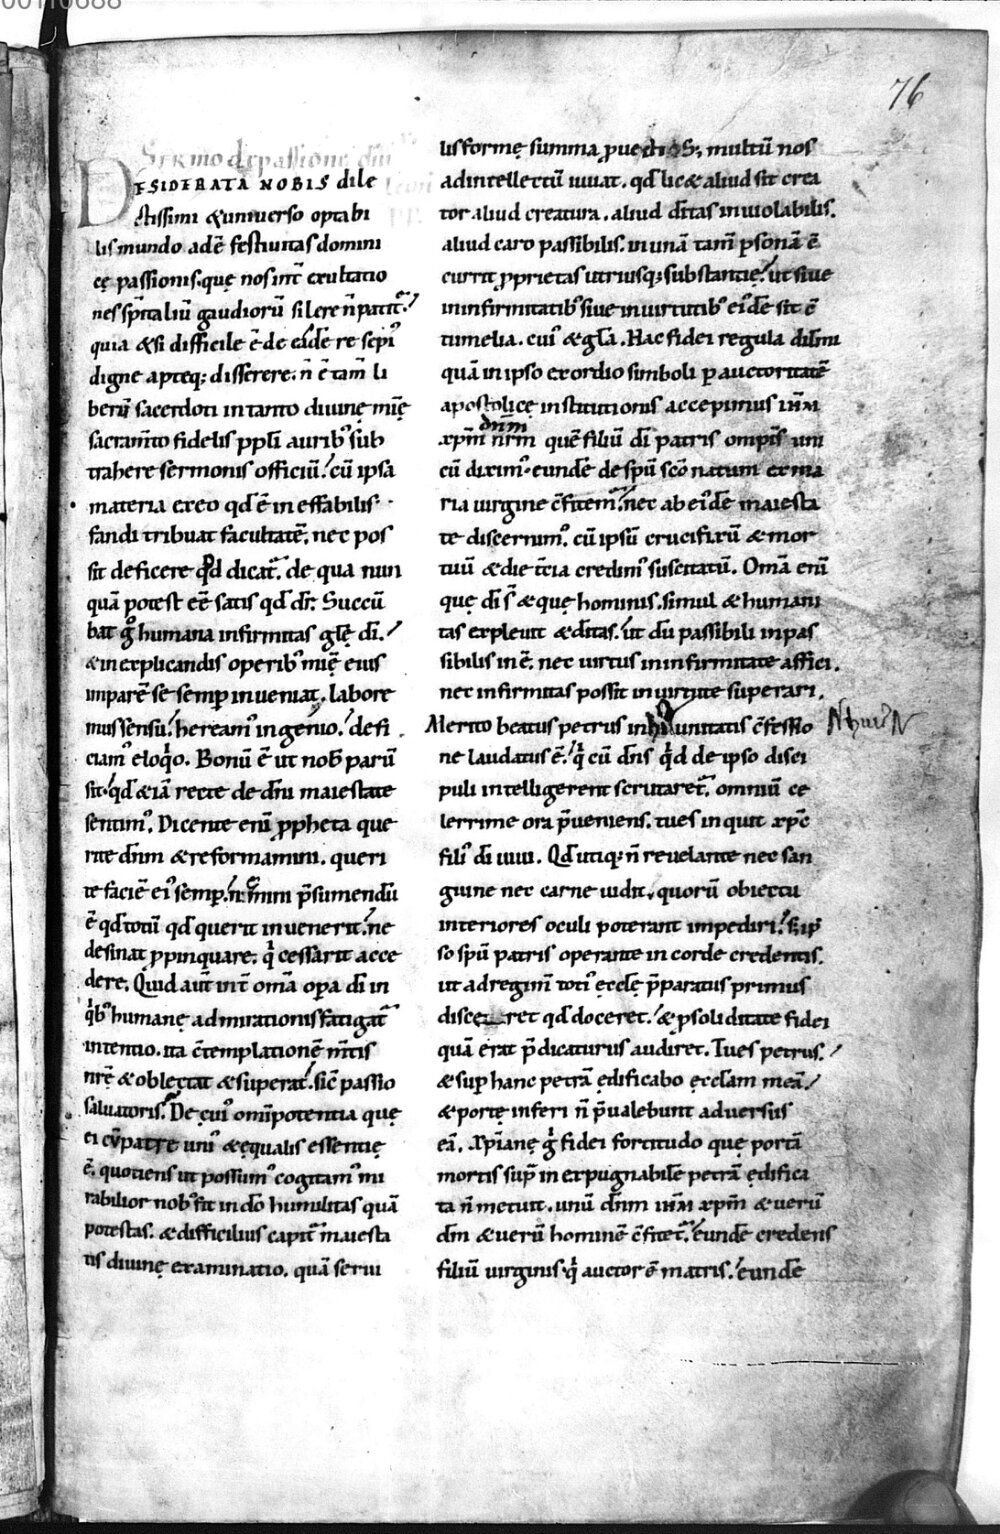 00110688
76
Sermo de passione dñi
DESIDERATA NOBIS dile
ctissimi &uniuerso optabi
lis mundo adẽ festiuitas domini
cę passionis. quę nos int̃ exultatio
nes sp̃italiũ gaudiorũ silere ñ patit᷑.
quia &si difficile ẽ de eadẽ re sepi᷒
digne apteq; disserere. ñ ẽ tam̃ li
berũ sacerdoti in tanto diuinę mię̃
sacram̃to fidelis pp̃li aurib᷒ sub
trahere sermonis officiũ. cũ ipsa
materia ex eo qd̃ ẽ in effabilis
fandi tribuat facultatẽ. nec pos
sit deficere quod dicat᷑. de qua nun
quã potest eẽ satis qd̃ dr̃. Succũ
bat g̊ humana infirmitas glę̃ dĩ.
& in explicandis operib᷒ mię̃ eius
imparẽ se semp̃ inueniat. labore
mus sensu. heream᷒ ingenio. defi
ciam᷒ eloq̊o. Bonũ ẽ ut nob̃ parũ
sit. qd̃ &iã recte de dñi maiestate
sentim᷒. Dicente enĩ ꝓpheta que
rite dñm & reformamini. queri
te faciẽ ei᷒ semp̃. p̃sumendũ
ẽ qd̃ totũ qd̃ querit inuenerit. ne
desinat ꝓpinquare. q̇ cessarit acce
dere. Quid aut̃ int̃ om̃a op̃a dĩ in
q̇b᷒ humanę admirationis fatigat᷑
intentio. ita c̃templationẽ m̃tis
nr̃ę & oblectat & superat. sic̃ passio
saluatoris. De cui᷒ omĩpotentia quę
ei cũ patre uni᷒ & ęqualis essentię
ẽ. quotiens ut possum᷒ cogitam᷒ mi
rabilior nob᷒ fit in dõ humilitas quã
potestas. & difficilius capit᷑ maiesta
tis diuinę exanimatio. quã serui
lis formę summa ꝓuectio. S; multũ nos
ad intellectũ iuuat. qd̃ lic& aliud sit crea
tor aliud creatura. aliud d̃itas inuiolabilis.
aliud caro passibilis. in unã tam̃ ꝑsonã c̃
currit ꝓprietas utriusq; substantię. ut siue
in infirmitatib᷒ siue in uirtutib᷒ ei᷒dẽ sit c̃
tumelia. cui᷒ & gl̃a. Hac fidei regula dil̃mi
quã in ipso exordio simboli ꝑ auctoritatẽ
apostolicę institutionis accepimus ih̃m
dñm
xp̃m nr̃m quẽ filiũ dĩ patris omp̃tis uni
cũ dixim᷒. eundẽ de sp̃u sc̃o natum ex ma
ria uirgine c̃fitem᷒. nec ab ei᷒dẽ maiesta
te discernim᷒. cũ ipsũ crucifixũ & mor
tuũ & die t̃cia credim᷒ suscitatũ. Om̃a enĩ
quę dĩ s̃ & quę hominis. simul & humani
tas expleuit & d̃itas. ut dũ passibili inpas
sibilis inẽ. nec uirtus in infirmitate affici.
nec infirmitas possit in uirtute superari.
Merito beatus petrus in hui᷒ unitatis c̃fessio
ne laudatus ẽ. q̇ cũ dñs q̊d de ipso disci
puli intelligerent scrutaret᷑. omniũ ce
lerrime ora p̃ueniens. tu es inquit xp̃c
fili᷒ dĩ uiui. Qd̃ utiq; ñ reuelante nec san
guine nec carne uidit. quorũ obiectu
interiores oculi poterant impediri. s; ip̃
so sp̃u patris operante in corde credentis.
ut ad regim̃ toti᷒ ęcclę̃ p̃paratus primus
disceret qd̃ doceret. & ꝓ soliditate fidei
quã erat p̃dicaturus audiret. Tu es petrus.
& sup̃ hanc petrã ędificabo ęccl̃am meã.
& portę inferi ñ p̃ualebunt aduersus
eã. Xp̃ianę g̊ fidei fortitudo quę portã
mortis sup̃ inexpugnabilẽ petrã ędifica
ta ñ metuit. unũ dñm ih̃m xp̃m & uerũ
dm̃ & uerũ hominẽ c̃fitet᷑. eundẽ credens
filiũ uirginis. q̇ auctor ẽ matris. eundẽ